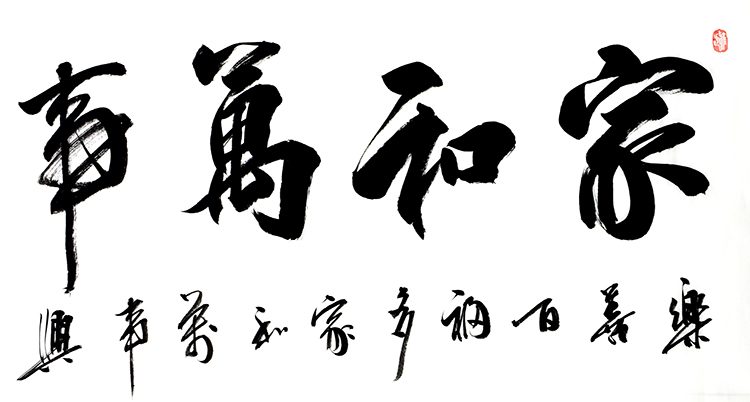 家和萬事
樂善百福多家和萬事興